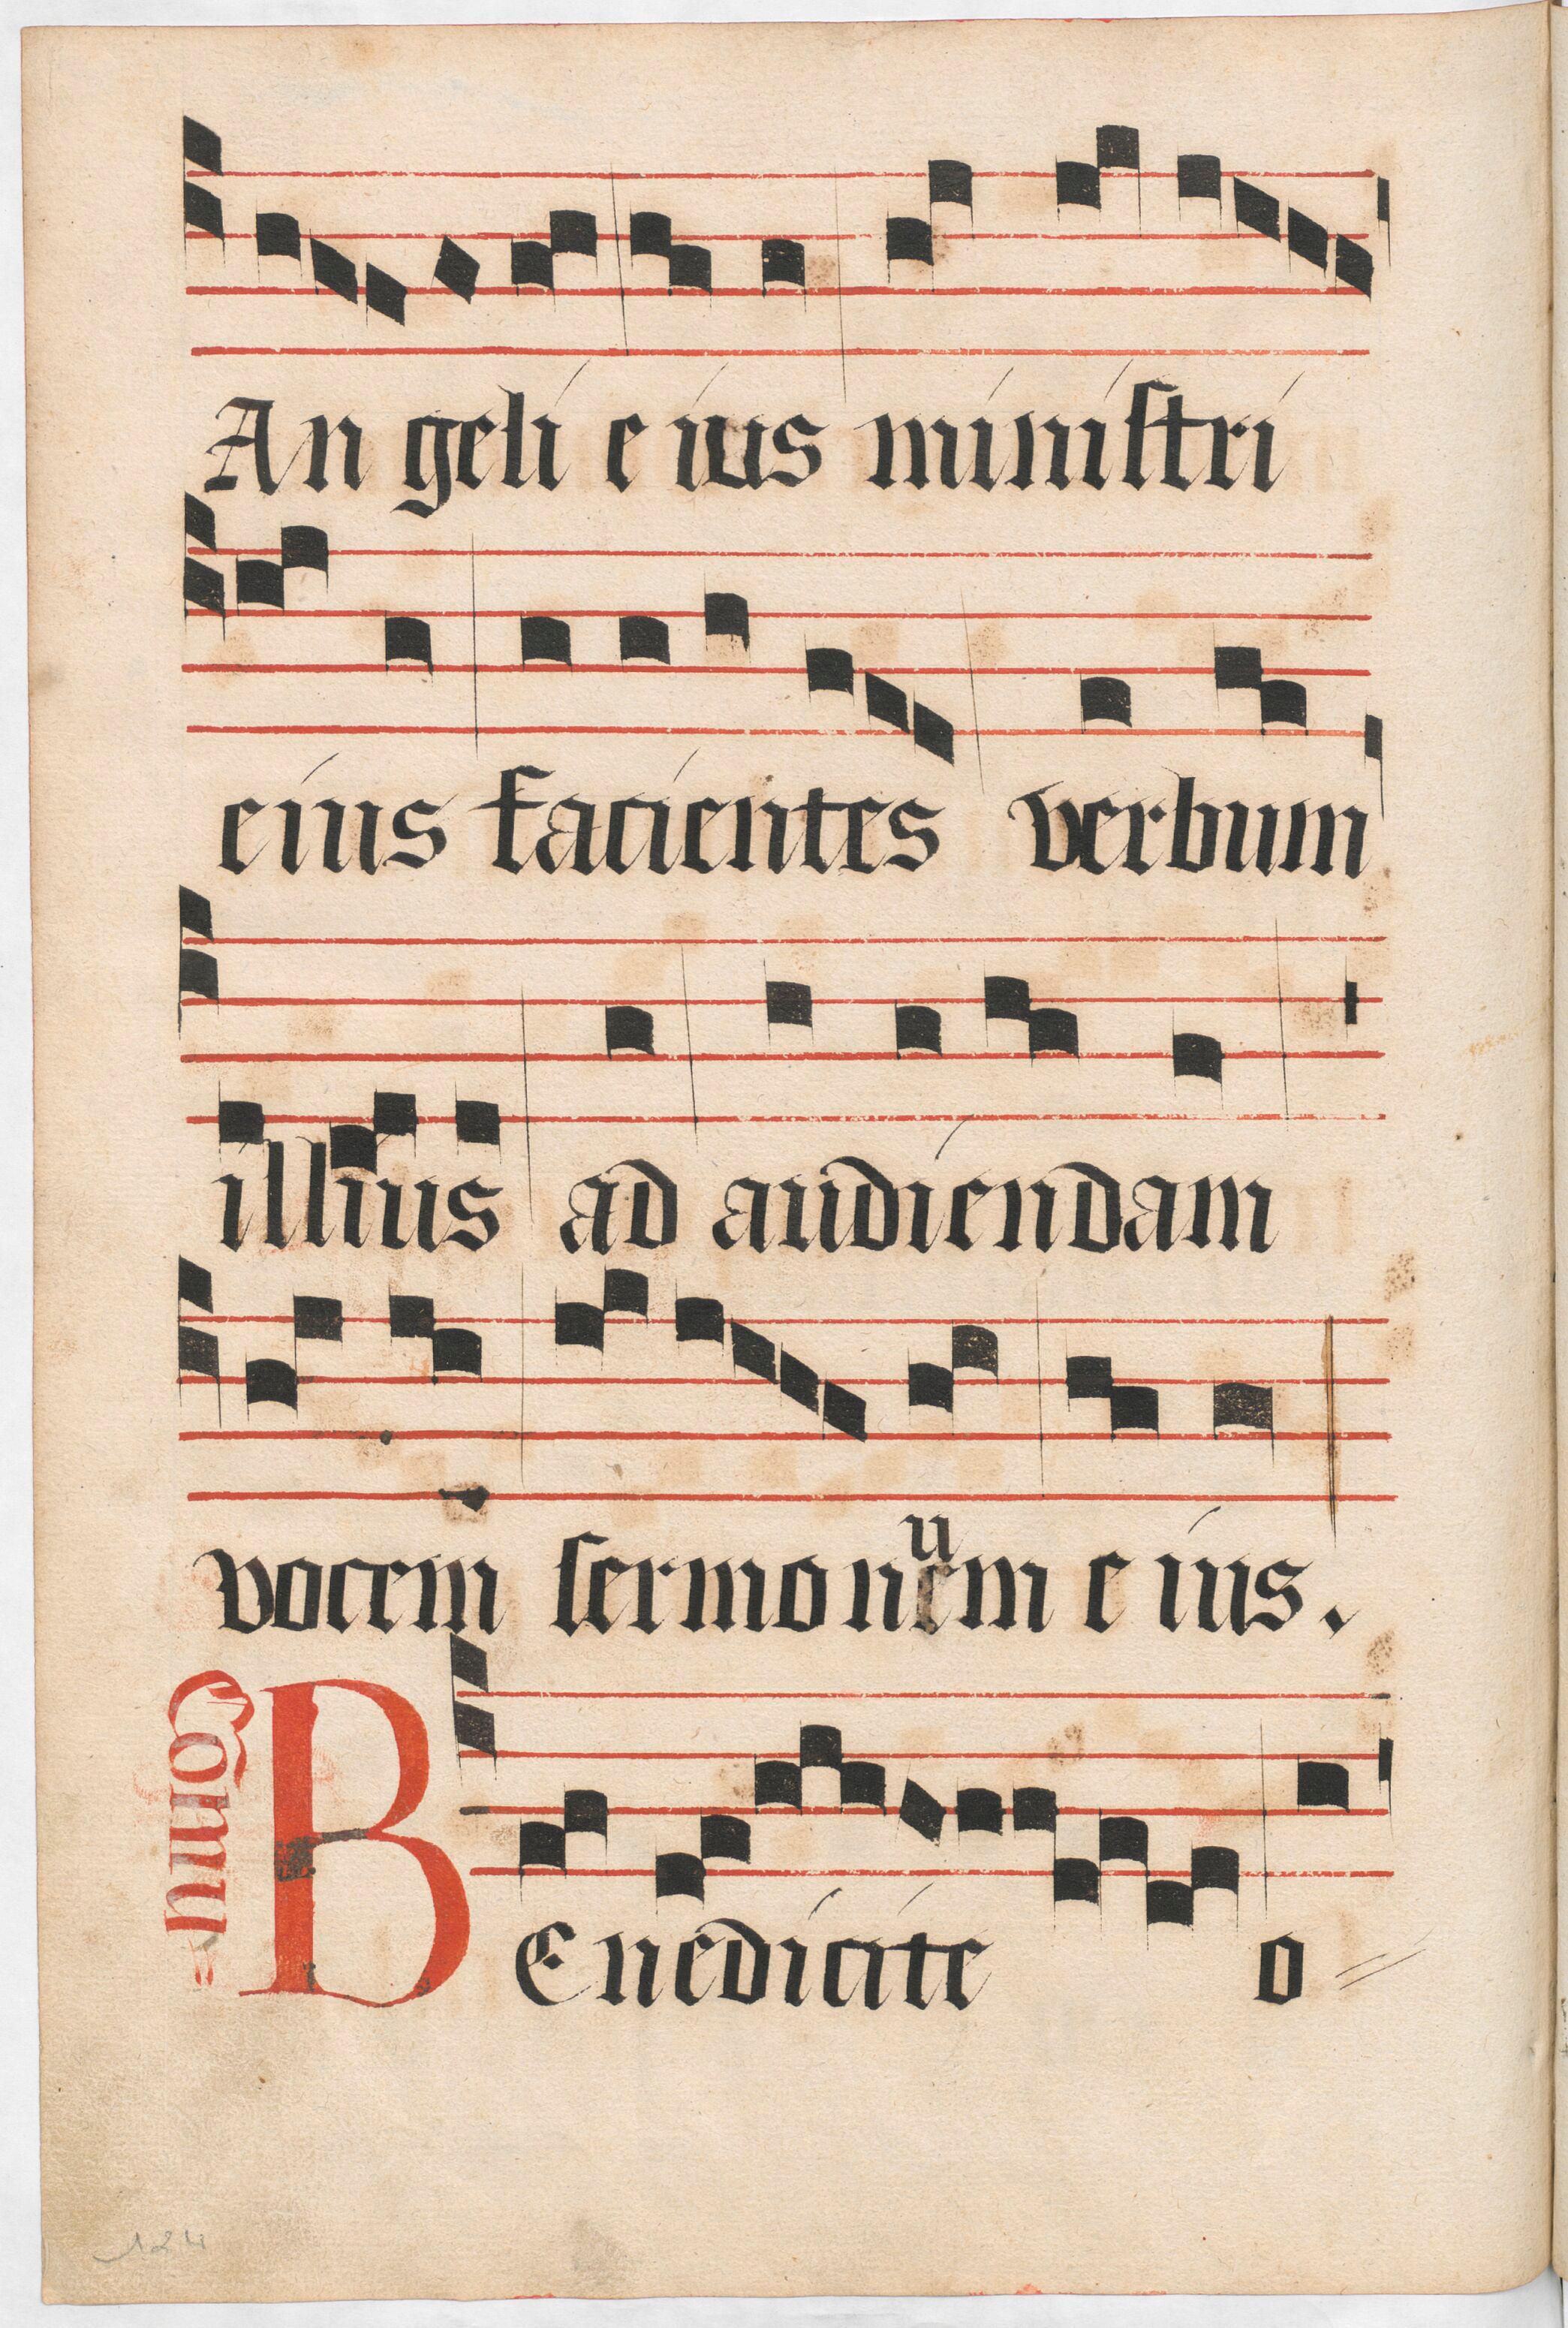 An geli e ius ministri
eius facientes verbum
illius ad audiendam
vocem sermonuem e ius.
Comu=
BEnedicite o=
124